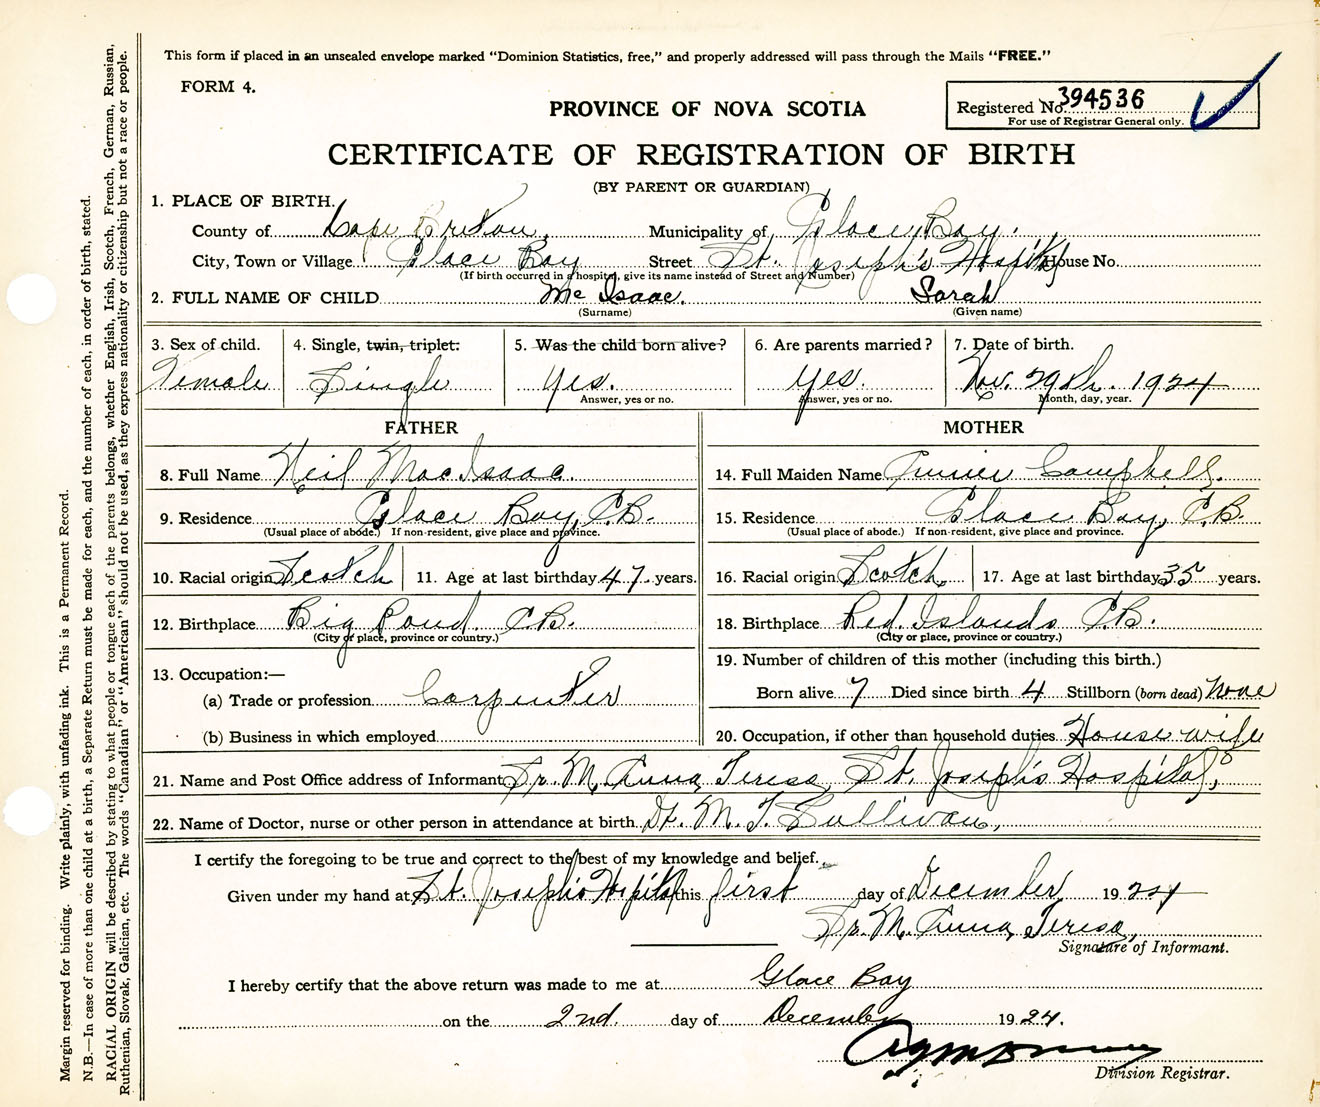 This form if placed in an unsealed envelope marked “Dominion Statistics, free,” and properly addressed will pass through the Mails “FREE.”
FORM 4.
Registered No. 394536
For use of Registrar General only.
PROVINCE OF NOVA SCOTIA
CERTIFICATE OF REGISTRATION OF BIRTH
(BY PARENT OR GUARDIAN)
1. PLACE OF BIRTH.
County of Cape Breton. Municipality of Glace Bay.
City, Town or Village Glace Bay Street St. Joseph's Hospital House No.
(If birth occurred in a hospital, give its name instead of Street and Number)
2. FULL NAME OF CHILD Mc Isaac. Sarah
(Surname) (Given name)
3. Sex of child. 4. Single, twin, triplet: 5. Was the child born alive? 6. Are parents married? 7. Date of birth.
Female Single Yes. Yes. Nov. 29th. 1924
Answer, yes or no. Answer, yes or no. Month, day, year.
FATHER
8. Full Name Neil MacIsaac.
9. Residence Glace Bay, C.B.
(Usual place of abode.) If non-resident, give place and province.
10. Racial origin Scotch 11. Age at last birthday 47. years.
12. Birthplace Big Pond. C.B.
(City or place, province or country.)
13. Occupation:—
(a) Trade or profession Carpenter
(b) Business in which employed
MOTHER
14. Full Maiden Name Annie Campbell.
15. Residence Glace Bay, C.B.
(Usual place of abode.) If non-resident, give place and province.
16. Racial origin Scotch. 17. Age at last birthday 35 years.
18. Birthplace Red Islands C.B.
(City or place, province or country.)
19. Number of children of this mother (including this birth.)
Born alive 7 Died since birth 4 Stillborn (born dead) None
20. Occupation, if other than household duties House wife
21. Name and Post Office address of Informant Sr. M. Anna Teresa, St. Joseph's Hospital,
22. Name of Doctor, nurse or other person in attendance at birth Dr. M. T. Sullivan,
I certify the foregoing to be true and correct to the best of my knowledge and belief.
Given under my hand at St. Joseph's Hospital this first day of December 1924
Sr. M. Anna Teresa,
Signature of Informant.
I hereby certify that the above return was made to me at Glace Bay
on the 2nd. day of December 1924.
Division Registrar.
Margin reserved for binding. Write plainly, with unfading ink. This is a Permanent Record.
N.B.—In case of more than one child at a birth, a Separate Return must be made for each, and the number of each, in order of birth, stated.
RACIAL ORIGIN will be described by stating to what people or tongue each of the parents belongs, whether English, Irish, Scotch, French, German, Russian,
Ruthenian, Slovak, Galician, etc. The words “Canadian” or “American” should not be used, as they express nationality or citizenship but not a race or people.